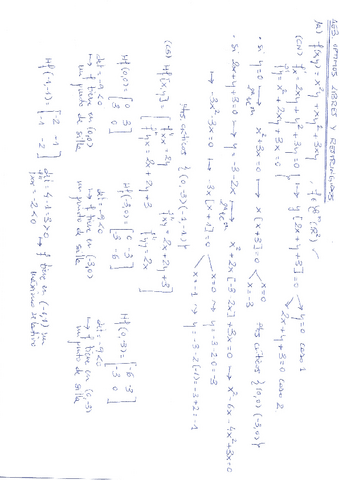 LAB OPTIMOS LIBRES Y RESTRINGIDOS
A) f(x,y) = x²y + xy² + 3xy , f ∈ C²(R²) ✓
(CN) f'x = 2xy + y² + 3y = 0 → y[2x + y + 3] = 0 → y = 0 caso 1
2x + y + 3 = 0 caso 2
f'y = x² + 2xy + 3x = 0
• si y = 0 → x² + 3x = 0 → x[x+3] = 0 x = 0
x = -3 ptos críticos {(0,0) (-3,0)}
• si 2x + y + 3 = 0 → y = -3 - 2x → x² + 2x[-3-2x] + 3x = 0 → x² - 6x - 4x² + 3x = 0
→ -3x² - 3x = 0 → -3x[x+1] = 0 x = 0 → y = -3 - 2·0 = -3
x = -1 → y = -3 - 2(-1) = -3 + 2 = -1
ptos críticos {(0,-3) (-1,-1)}
(CS) Hf(x,y) = [f''xx = 2y f''xy = 2x + 2y + 3
f''yx = 2x + 2y + 3 f''yy = 2x]
Hf(0,0) = [0 3
3 0]
det = -9 < 0
→ f tiene en (0,0)
un punto de silla
Hf(-3,0) = [0 -3
-3 -6]
det = -9 < 0
→ f tiene en (-3,0)
un punto de silla
Hf(0,-3) = [-6 -3
-3 0]
det = -9 < 0
→ f tiene en (0,-3)
un punto de silla
Hf(-1,-1) = [-2 -1
-1 -2]
det = 4 - 1 = 3 > 0
f''xx = -2 < 0 → f tiene en (-1,-1) un
máximo relativo